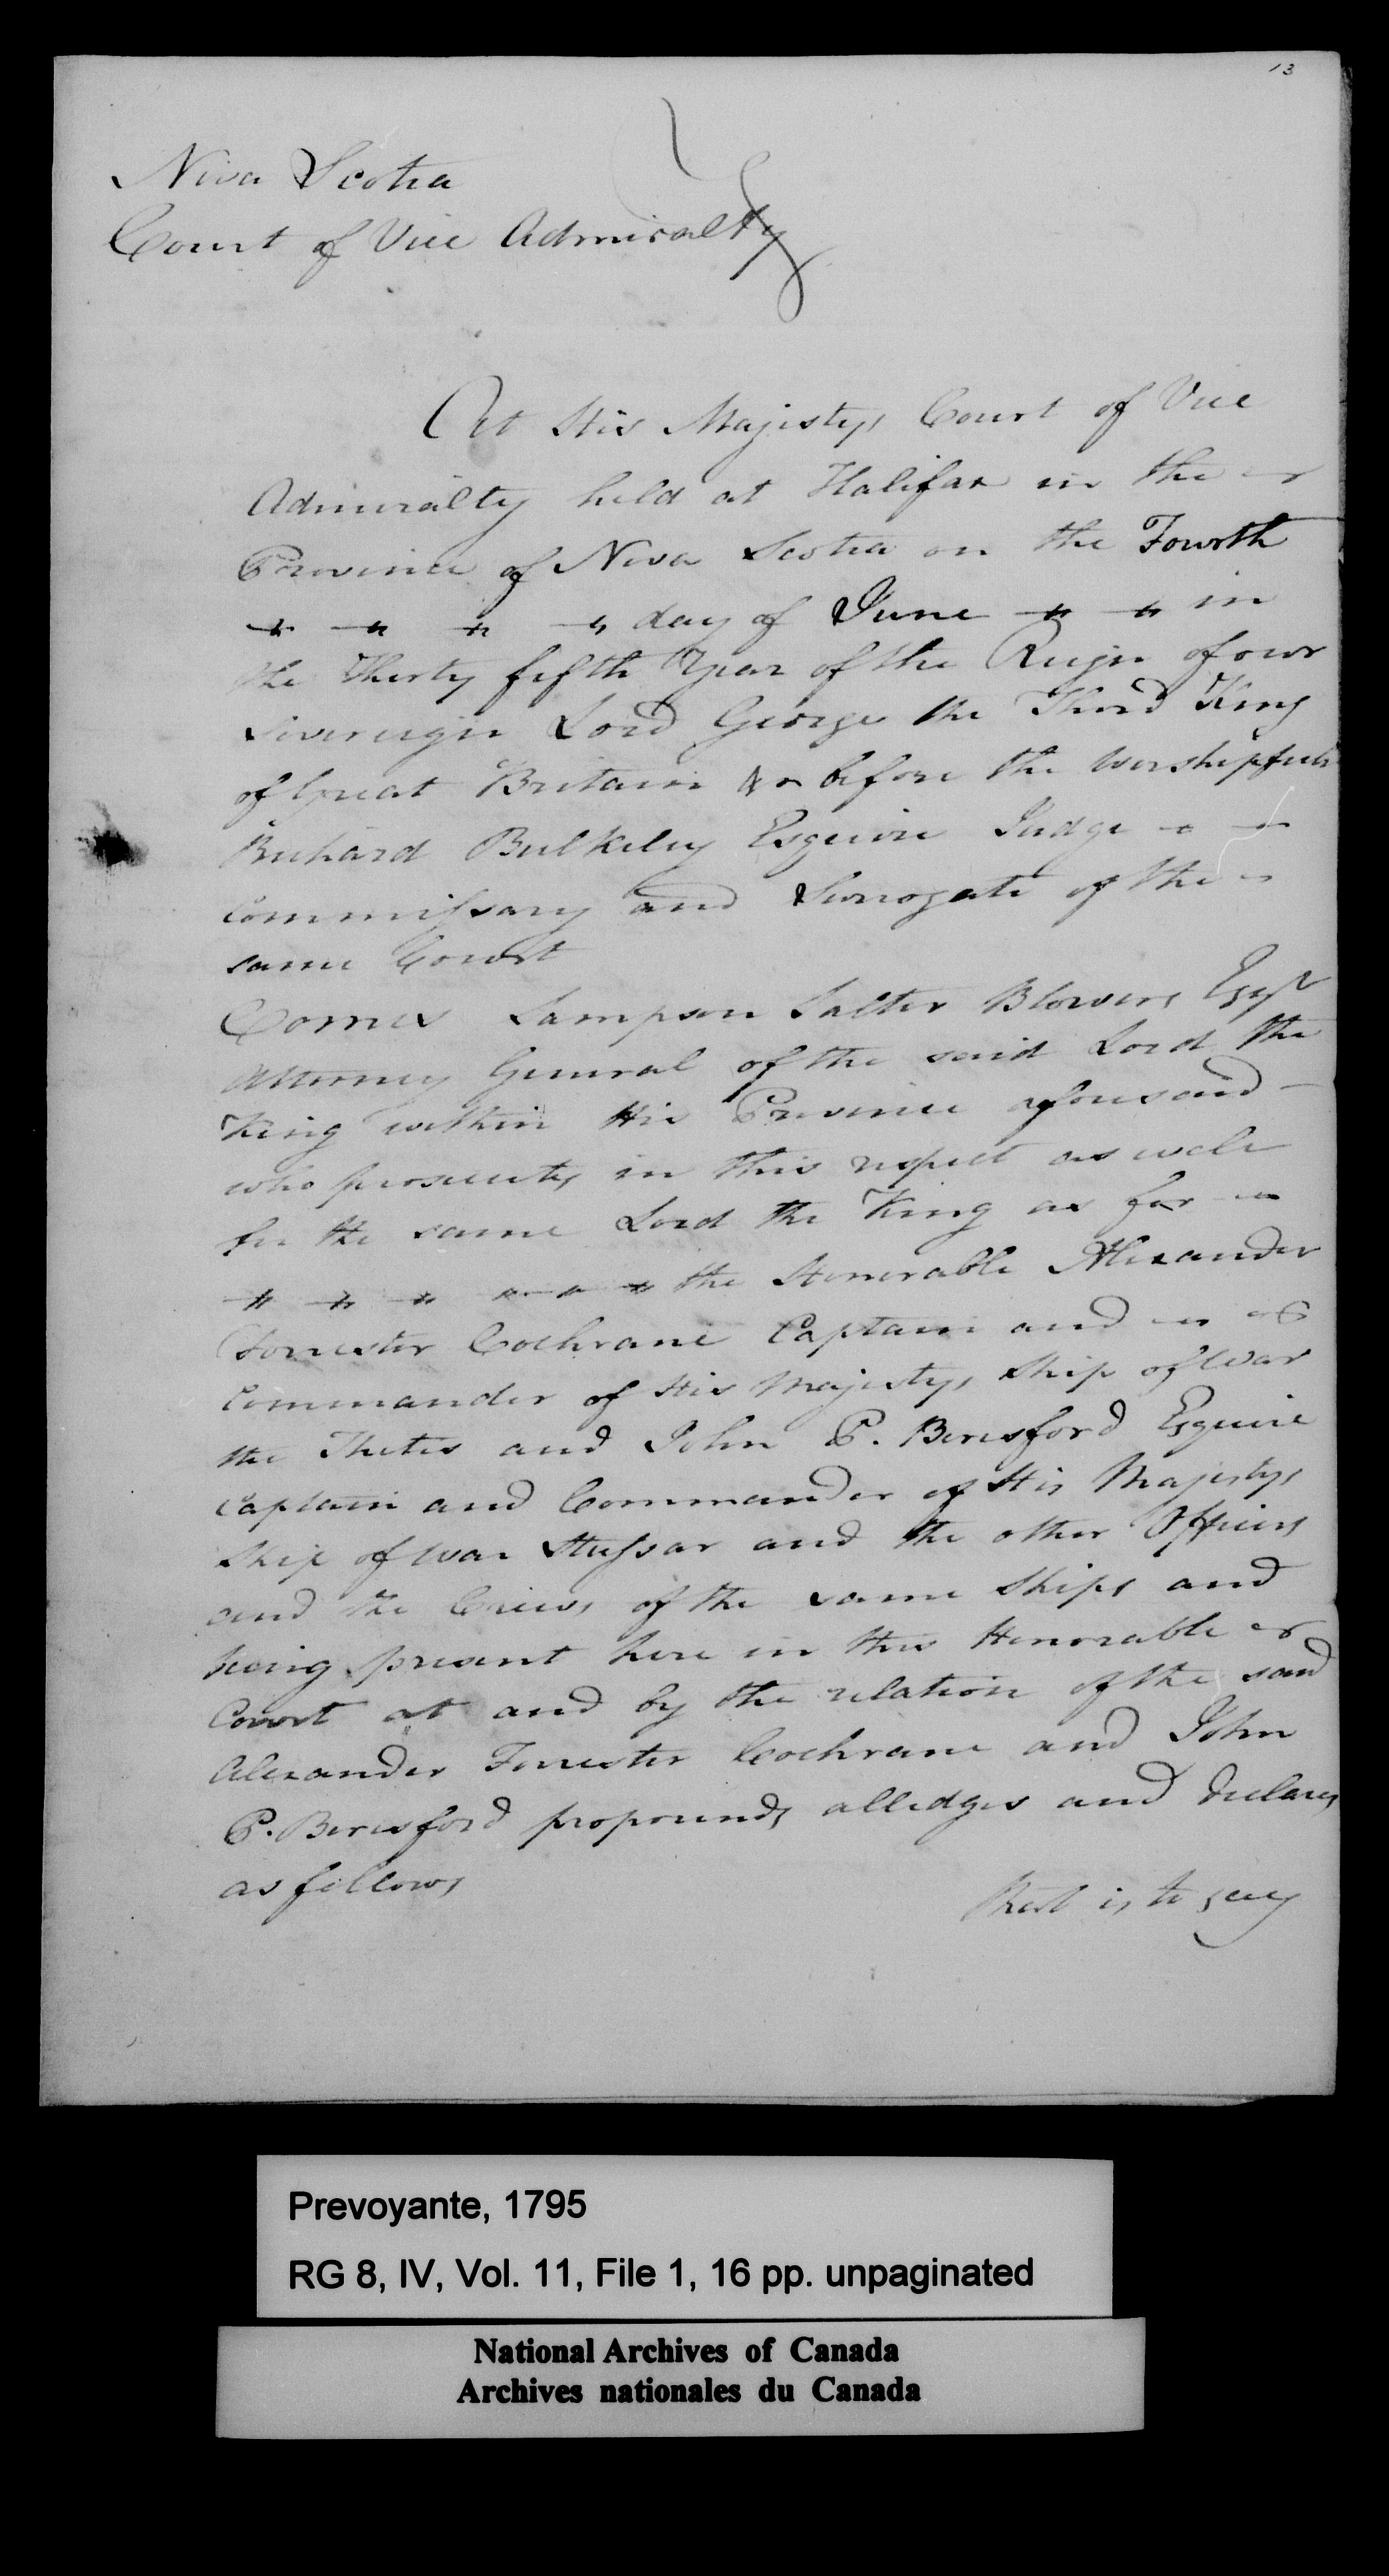 13
Nova Scotia
Court of Vice Admiralty
At His Majestys Court of Vice
Admiralty held at Halifax in the
Province of Nova Scotia on the Fourth
day of June in
the Thirty fifth Year of the Reign of our
Sovereign Lord George the Third King
of Great Britain &c before the Worshipfull
Richard Bulkeley Esquire Judge
Commissary and Surrogate of the
same Court
Comes Sampson Salter Blowers Esqr
Attorney General of the said Lord the
King within His Province aforesaid
who prosecutes in this respect as well
for the same Lord the King as for
the Honorable Alexander
Forrester Cochrane Captain and
Commander of His Majestys Ship of War
the Thetis and John P. Beresford Esquire
Captain and Commander of His Majestys
Ship of War Hussar and the other Officers
and the Crews of the same Ships and
being present here in this Honorable
Court at and by the relation of the said
Alexander Forrester Cochrane and John
P. Beresford propounds alledges and declares
as follows
that is to say
Prevoyante, 1795
RG 8, IV, Vol. 11, File 1, 16 pp. unpaginated
National Archives of Canada
Archives nationales du Canada